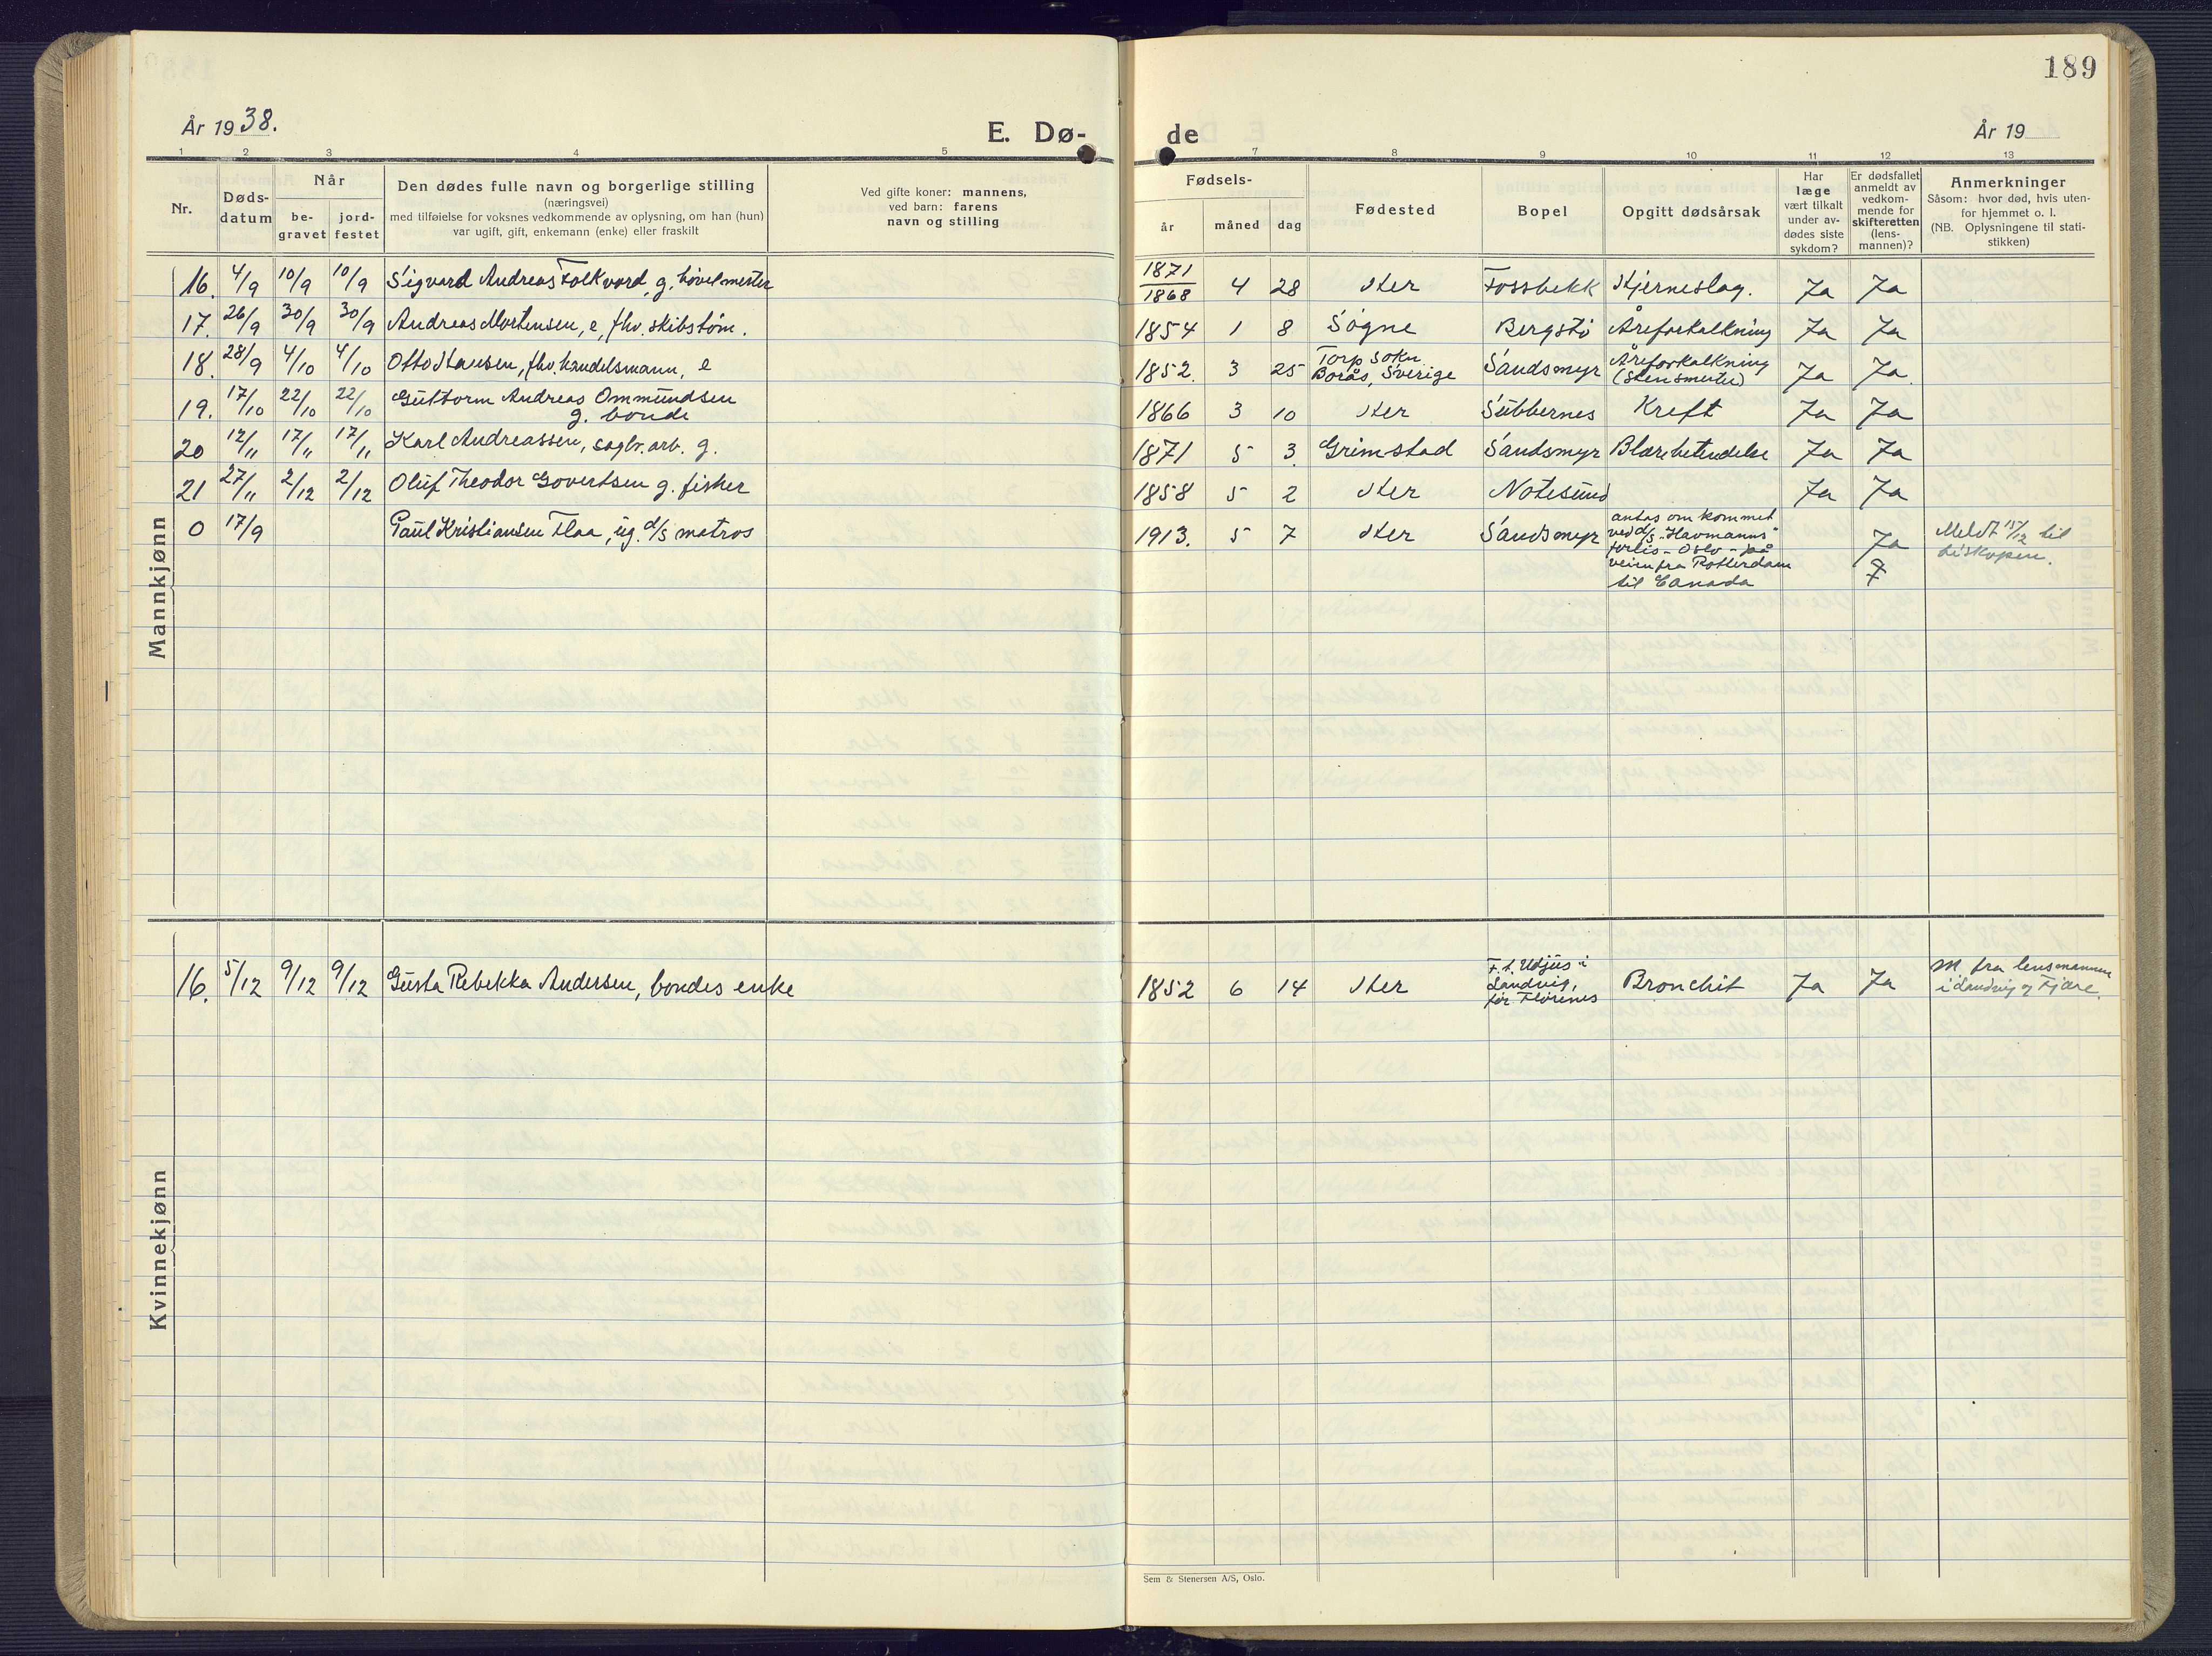 189
År 1938.
E. Dø-
de
År 19
1 2 3 4 5 7 8 9 10 11 12 13
Nr.
Døds-
datum
Når
be-
gravet
jord-
festet
Den dødes fulle navn og borgerlige stilling
(næringsvei)
med tilføielse for voksnes vedkommende av oplysning, om han (hun)
var ugift, gift, enkemann (enke) eller fraskilt
Ved gifte koner: mannens,
ved barn: farens
navn og stilling
Fødsels-
år måned dag
Fødested
Bopel
Opgitt dødsårsak
Har
læge
vært tilkalt
under av-
dødes siste
sykdom?
Er dødsfallet
anmeldt av
vedkom-
mende for
skifteretten
(lens-
mannen)?
Anmerkninger
Såsom: hvor død, hvis uten-
for hjemmet o. l.
(NB. Oplysningene til stati-
stikken)
Mannkjønn
16. 4/9 10/9 10/9 Sigvard Andreas Folkvord, g. høvelmester 1871/1868 4 28 Her Fossbekk Hjerneslag. Ja Ja
17. 26/9 30/9 30/9 Andreas Mortensen, e, fhv. skibstøm. 1854 1 8 Søgne Bergstø Åreforkalkning Ja Ja
18. 28/9 4/10 4/10 Otto Hansen, fhv. handelsmann, e 1852. 3 25 Torp sokn
Borås, Sverige Sandsmyr Åreforkalkning
Ja Ja.
19. 17/10 22/10 22/10 Guttorm Andreas Ommundsen
g. bonde 1866 3 10 Her Subbernes Kreft Ja Ja
20 12/11 17/11 17/11 Karl Andreassen, sagbr. arb. g. 1871 5 3. Grimstad Sandsmyr Blærebetendelse Ja Ja
21 27/11 2/12 2/12 Oluf Theodor Govertsen g. fisker 1858 5 2 Her Notesund Ja Ja
0 17/9 Paul Kristiansen Flaa, ug. d/s matros 1913. 5 7 Her Sandsmyr antas omkommet
ved d/s "Havmanns"
forlis - Oslo - på
veien fra Rotterdam
til Canada
Ja
Meldt 15/12 til
biskopen.
Kvinnekjønn
16. 5/12 9/12 9/12 Gusta Rebekka Andersen, bondes enke 1852 6 14 Her F. t. Udjus i
Landvig,
før Flørenes Bronchit Ja Ja M. fra lensmannen
i Landvig og Fjære.
Sem & Stenersen A/S, Oslo.